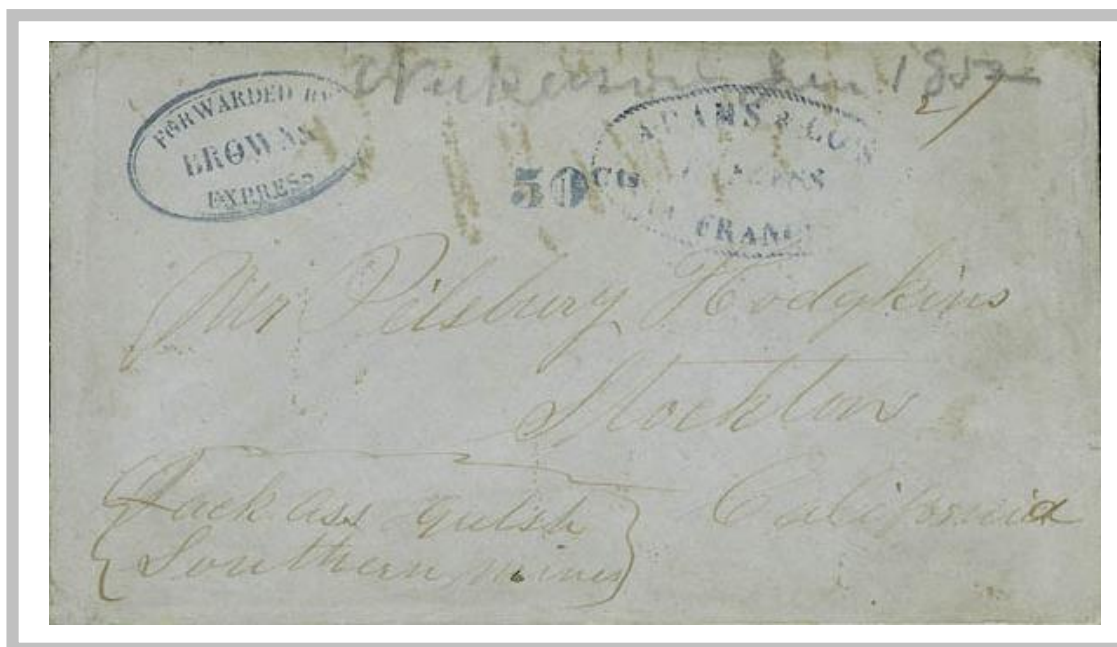 1852
FORWARDED BY
BROWNS
EXPRESS
ADAMS & CO'S
EXPRESS
SAN FRANC
50 Cts
Mr Pilsbury Hodgkins
Stockton
California
Jack ass gulsh
Southern mines